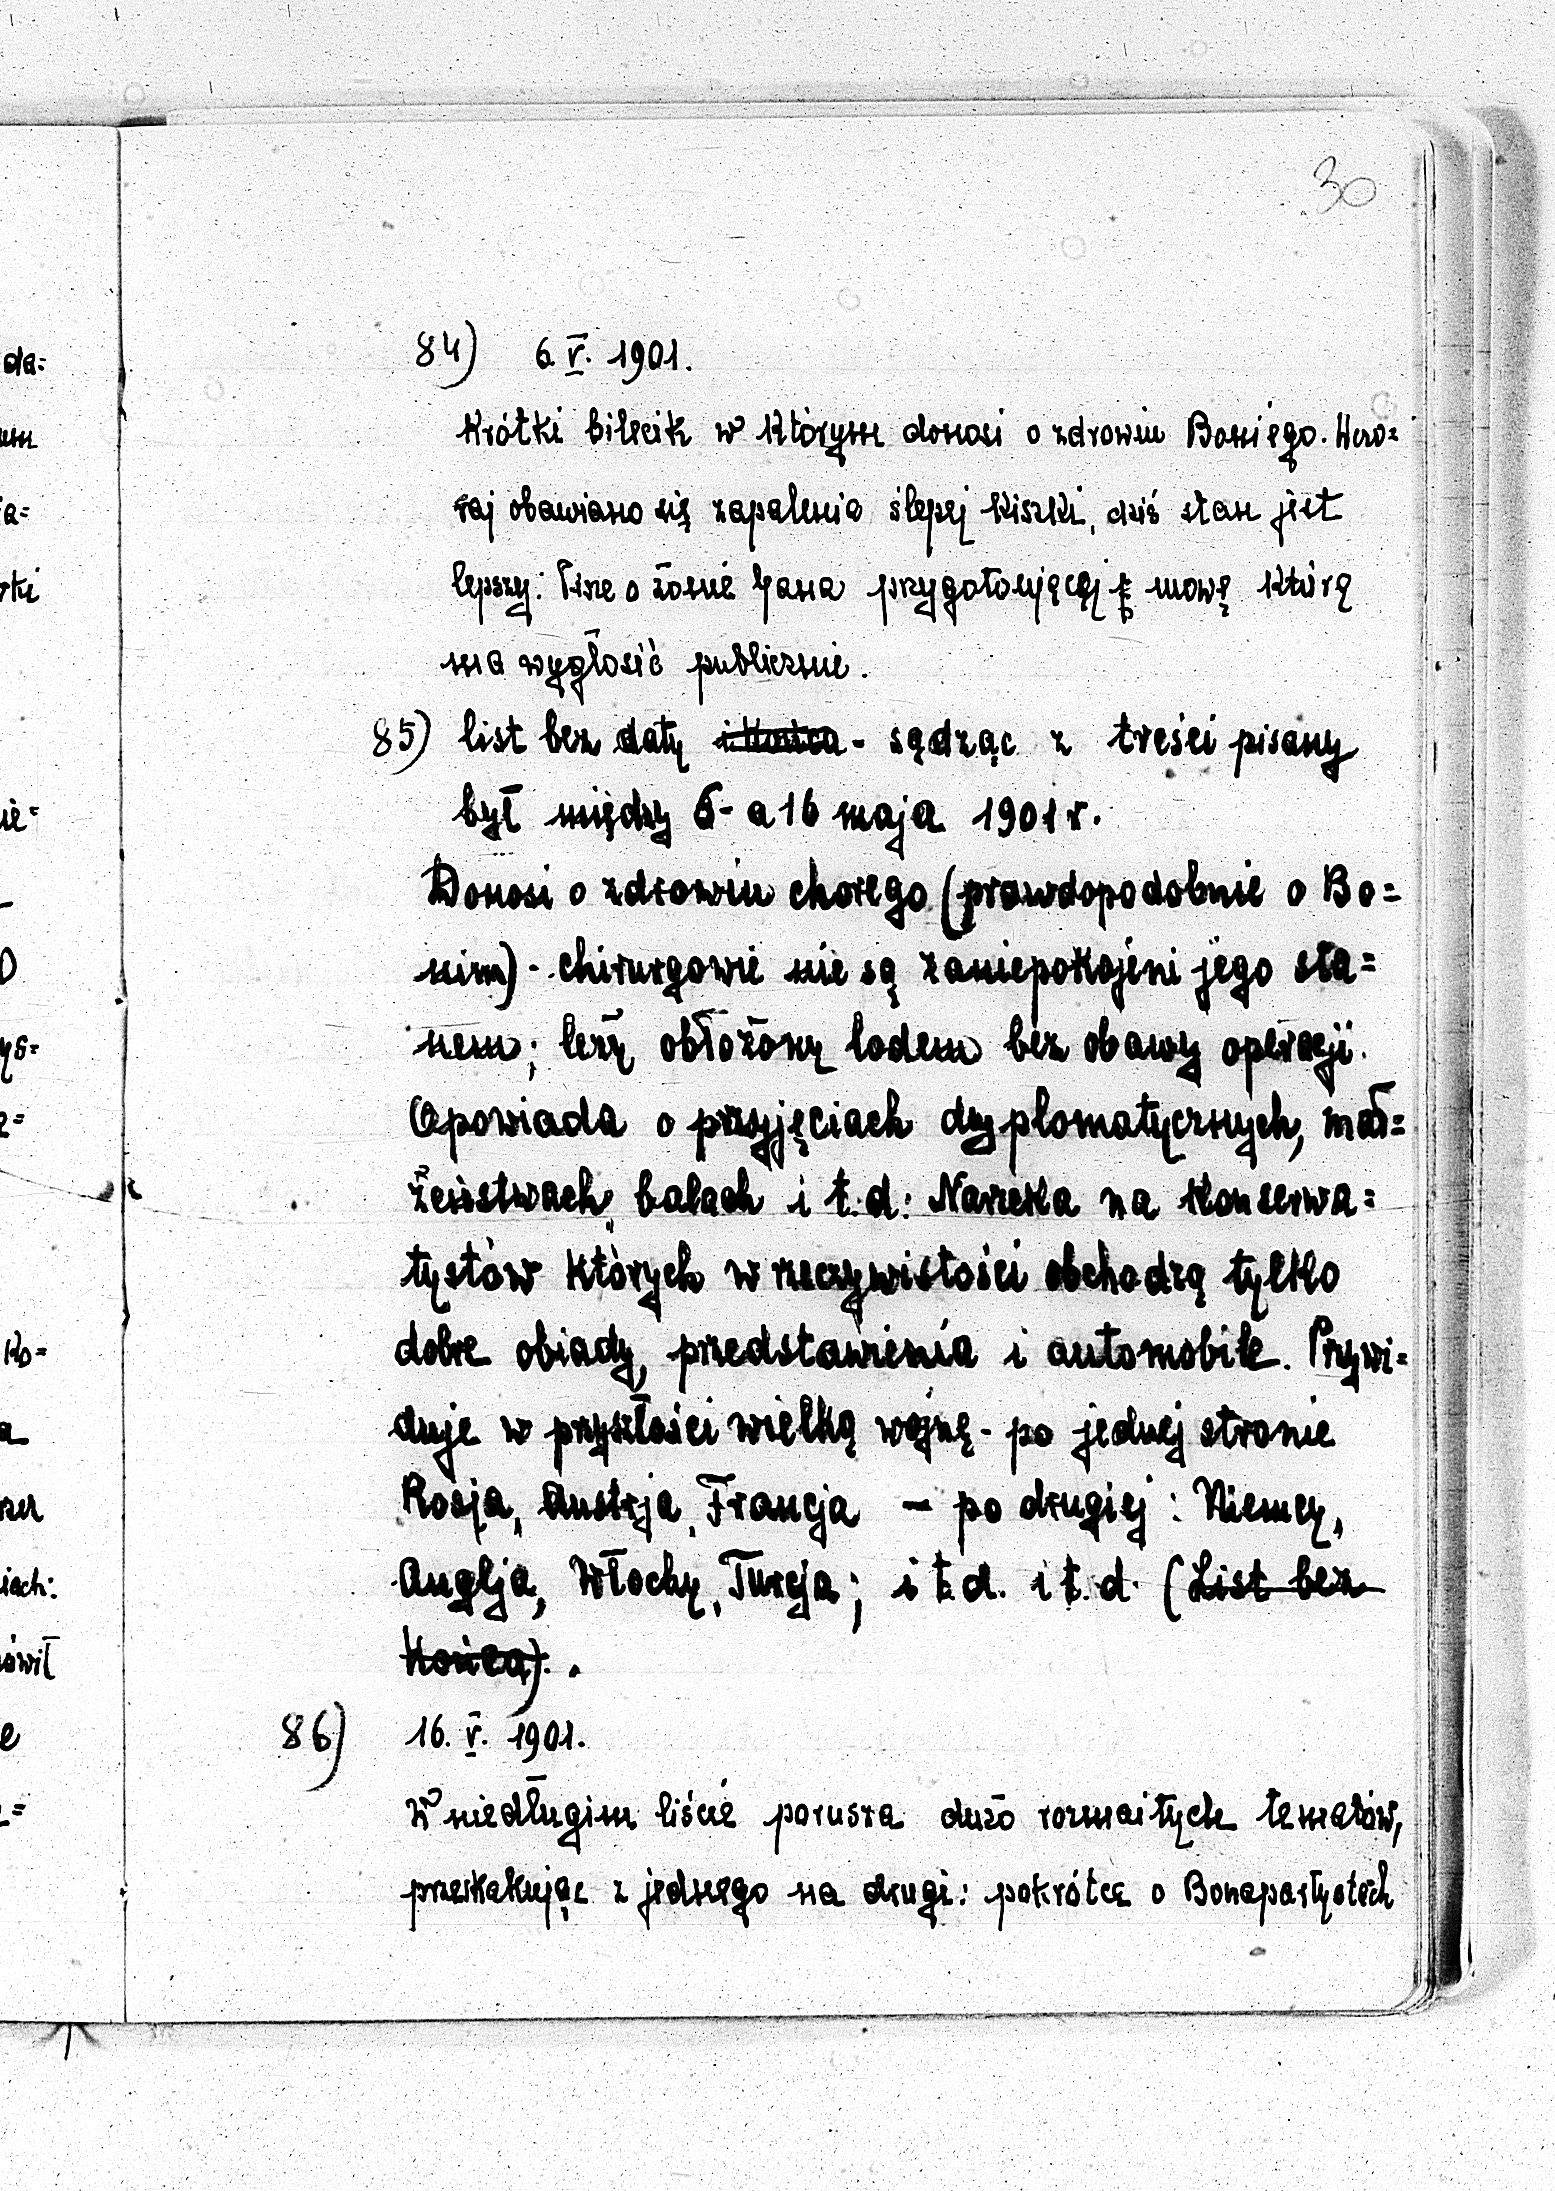 30
84) 6. V. 1901.
Krótki bilecik w którym donosi o zdrowiu Boniego. Wczo=
raj obawiano się zapalenia ślepej kiszki, dziś stan jest
lepszy. Pisze o żonie przygotowującej mowę którą
ma wygłosić publicznie.
85) list bez daty i końca - sądząc z treści pisany
był między 6 - a 16 maja 1901 r.
Donosi o zdrowiu chorego (prawdopodobnie o Bo=
nim) - chirurgowie nie są zaniepokojeni jego sta=
nem; leży obłożony lodem bez obawy operacji.
Opowiada o przyjęciach dyplomatycznych, mał=
żeństwach, balach i t.d. Narzeka na konserwa=
tystów których w rzeczywistości obchodzą tylko
dobre obiady, przedstawienia i automobile. Przewi=
duje w przyszłości wielką wojnę - po jednej stronie
Rosja, Austrja, Francja - po drugiej : Niemcy,
Anglja, Włochy, Turcja; i t.d. i t.d. (List bez
końca).
86) 16. V. 1901.
W niedługim liście porusza dużo rozmaitych tematów,
przeskakując z jednego na drugi: pokrótce o Bonapartystach